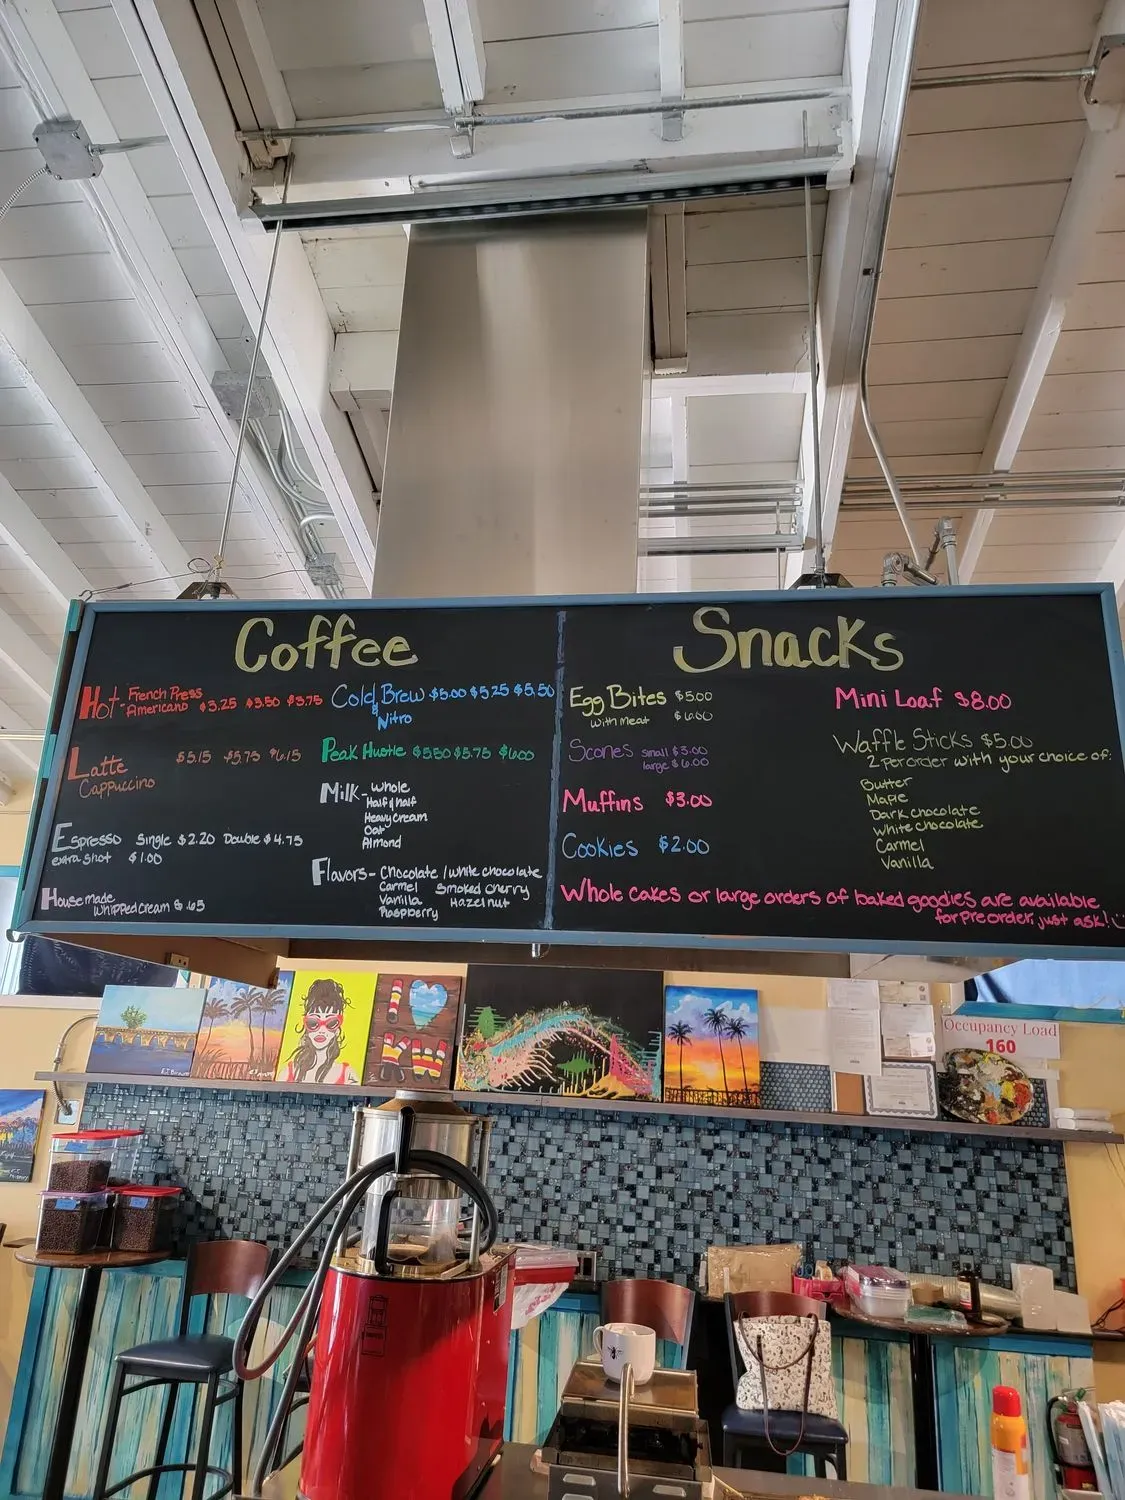 Coffee
Hot - French Press
Americano $3.25 $3.50 $3.75
Latte $5.15 $5.75 $6.15
Cappuccino
Espresso Single $2.20 Double $4.75
extra shot $1.00
House made
whipped cream $.65
Cold Brew $5.00 $5.25 $5.50
&
Nitro
Peak Hustle $5.50 $5.75 $6.00
Milk - Whole
Half & half
Heavy cream
Oat
Almond
Flavors - Chocolate / white chocolate
Carmel Smoked cherry
Vanilla Hazelnut
Raspberry
Snacks
Egg Bites $5.00
with meat $6.00
Scones small $3.00
large $6.00
Muffins $3.00
Cookies $2.00
Mini Loaf $8.00
Waffle Sticks $5.00
2 per order with your choice of:
Butter
Maple
Dark chocolate
White chocolate
Carmel
Vanilla
Whole cakes or large orders of baked goodies are available
for preorder, just ask!
Occupancy Load
160